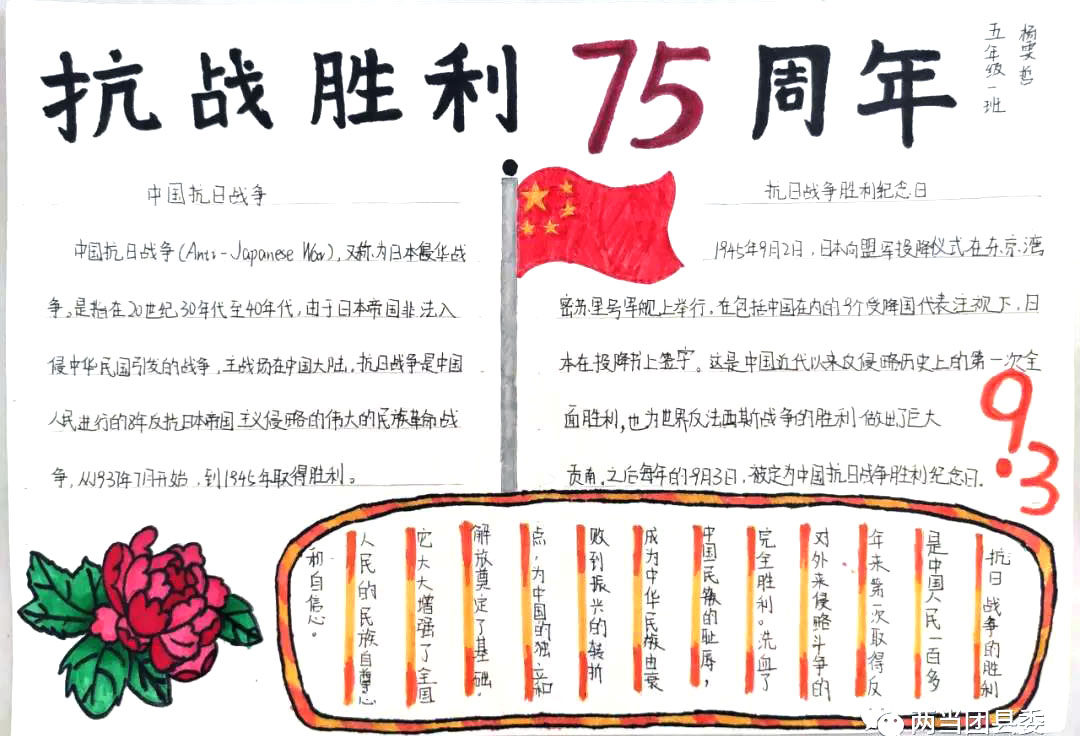 抗战胜利75周年
杨雯哲
五年级一班
中国抗日战争
中国抗日战争(Anti-Japanese War),又称为日本侵华战
争。是指在20世纪30年代至40年代,由于日本帝国非法入
侵中华民国引发的战争,主战场在中国大陆。抗日战争是中国
人民进行的8年反抗日本帝国主义侵略的伟大的民族革命战
争,从1937年7月开始,到1945年取得胜利。
抗日战争胜利纪念日
1945年9月2日,日本向盟军投降仪式在东京湾
密苏里号军舰上举行,在包括中国在内的9个受降国代表注视下,日
本在投降书上签字。这是中国近代以来反侵略历史上的第一次全
面胜利,也为世界反法西斯战争的胜利做出了巨大
贡献,之后每年的9月3日,被定为中国抗日战争胜利纪念日.
9.3
抗日战争的胜利
是中国人民一百多
年来第一次取得反
对外来侵略斗争的
完全胜利。洗血了
中国民族的耻辱,
成为中华民族由衰
败到振兴的转折
点,为中国的独立和
解放奠定了基础.
它大大增强了全国
人民的民族自尊心
和自信心。
两当团县委